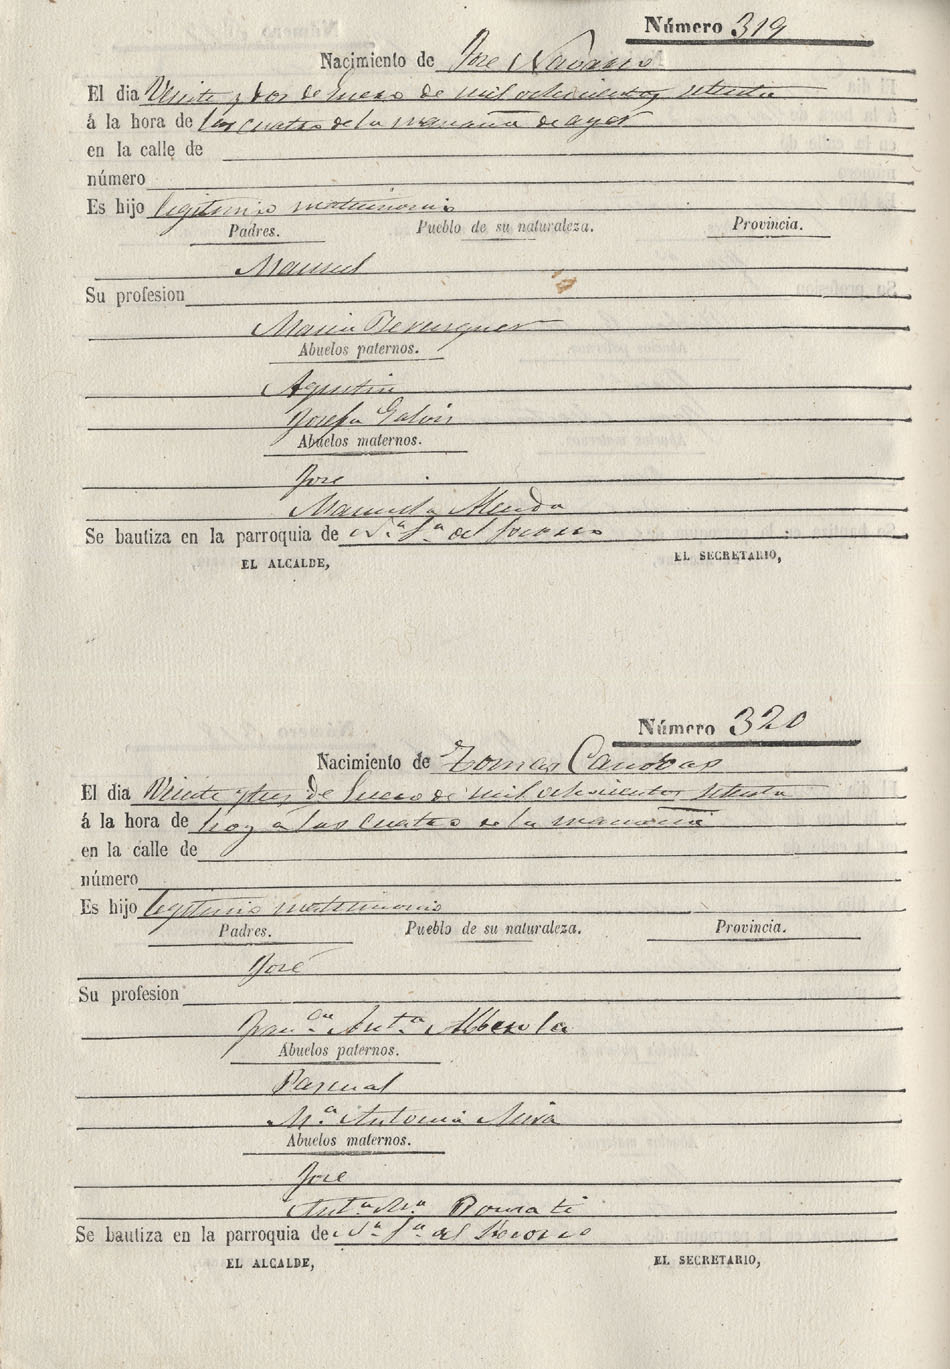 Número 319
Nacimiento de Jose Navarro
El dia Veinte y dos de Enero de mil ochocientos setenta
á la hora de las cuatro de la mañana de ayer
en la calle de
número
Es hijo legitimo matrimonio
Padres. Pueblo de su naturaleza. Provincia.
Manuel
Su profesion
Maria Berenguer
Abuelos paternos.
Agustin
Josefa Galvis
Abuelos maternos.
Jose
Manuela
Se bautiza en la parroquia de N.ª S.ª del Socorro
EL ALCALDE, EL SECRETARIO,
Número 320
Nacimiento de Tomas Canovas
El dia Veinte y tres de Enero de mil ochocientos setenta
á la hora de hoy a las cuatro de la mañana
en la calle de
número
Es hijo legitimo matrimonio
Padres. Pueblo de su naturaleza. Provincia.
José
Su profesion
Ant.ª Alberola
Abuelos paternos.
Pascual
M.ª Antonia Mira
Abuelos maternos.
Jose
Ant.ª M.ª
Se bautiza en la parroquia de N.ª S.ª del Socorro
EL ALCALDE, EL SECRETARIO,